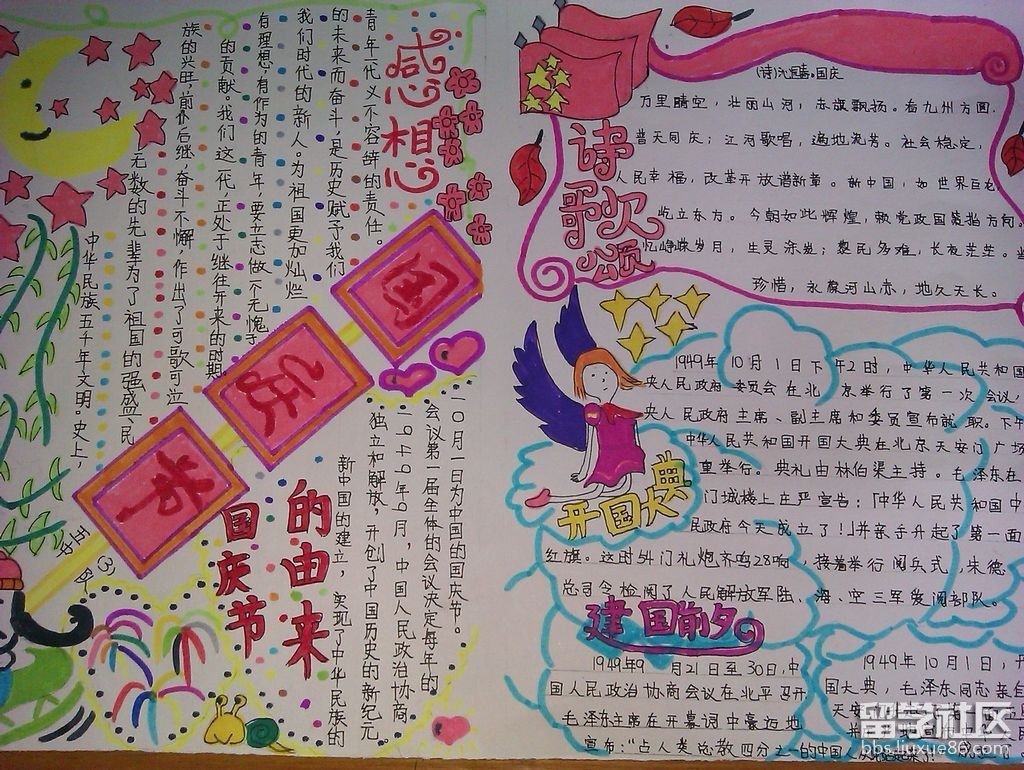 感想
中华民族五千年文明。史上,
无数的先辈为了祖国的强盛、民
族的兴旺,前仆后继,奋斗不懈,作出了可歌可泣
的贡献。我们这一代,正处于继往开来的时期,
有理想,有作为的青年,要立志做一个无愧于
我们时代的新人。为祖国更加灿烂
的未来而奋斗,是历史赋予我们
青年一代义不容辞的责任。
国
庆
节
五中队
(3)
国庆节
的由来
新中国的建立,实现了中华民族的
独立和解放,开创了中国历史的新纪元。
一九四九年9月,中国人民政治协商
会议第一届全体的会议决定每年的
一〇月一日为中国的国庆节。
诗歌颂
(诗)沁园春。国庆
万里晴空,壮丽山河,赤旗飘扬。看九州方圆,
普天同庆;江河歌唱,遍地流芳。社会稳定,
人民幸福,改革开放谱新章。新中国,如世界巨龙
屹立东方。今朝如此辉煌,赖党政国策指方向。
忆峥嵘岁月,生灵涂炭;黎民多难,长夜茫茫。
珍惜,永葆河山赤,地久天长。
开国大典
1949年10月1日下午2时,中华人民共和国
央人民政府委员会在北京举行了第一次会议,
央人民政府主席、副主席和委员宣布就职。下午
中华人民共和国开国大典在北京天安门广场
重举行。典礼由林伯渠主持。毛泽东在
门城楼上庄严宣告:「中华人民共和国中
民政府今天成立了!」并亲手升起了第一面
红旗。这时54门礼炮齐鸣28响,接着举行阅兵式,朱德
总司令检阅了人民解放军陆、海、空三军受阅部队。
建国前夕
1949年9月21日至30日,中
国人民政治协商会议在北平召开
毛泽东主席在开幕词中豪迈地
宣布:“占人类总数四分之一的中国人
1949年10月1日,开
国大典,毛泽东同志亲自
天安
留学社区
bbs.liuxue86.com